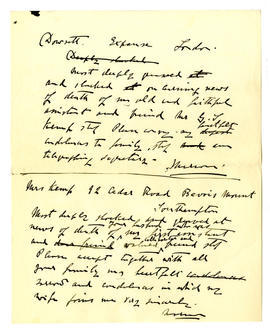 Dowsett Expanse London.
Deeply shocked
most deeply grieved at
and shocked at on hearing news
of death of my old and faithful
assistant and friend Mr G. S.
Kemp stop Please convey my deepest
condolences to family stop am
telegraphing separately -
Marconi
Mrs Kemp 92 Cedar Road Bevois Mount
Southampton
Most deeply shocked and grieved at
news of death of your husband who was
my first assistant
and friend valued friend stop
Please accept together with all
your family my heartfelt condolences
sorrow and condolences in which my
wife joins me very sincerely.
Marconi